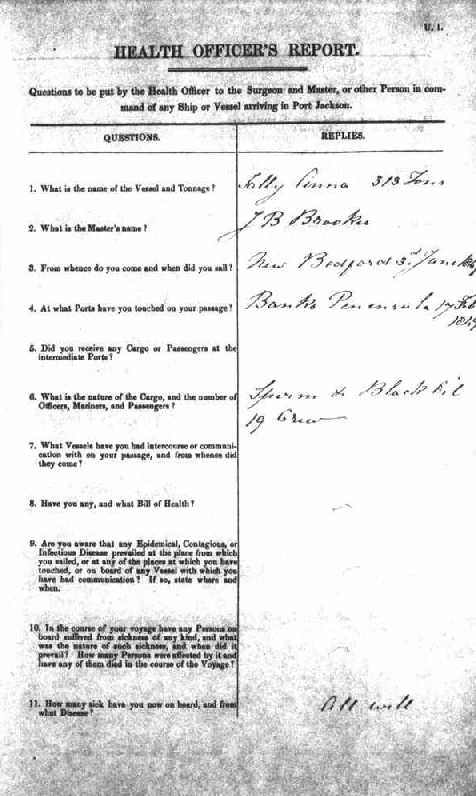 U. 1.
HEALTH OFFICER'S REPORT.
Questions to be put by the Health Officer to the Surgeon and Master, or other Person in com-
mand of any Ship or Vessel arriving in Port Jackson.
QUESTIONS. REPLIES.
1. What is the name of the Vessel and Tonnage? Sally Anna 313 Tons
2. What is the Master's name? J B Brooks
3. From whence do you come and when did you sail? New Bedford 3rd June
4. At what Ports have you touched on your passage? Banks Peninsula 17 Feb
1847
5. Did you receive any Cargo or Passengers at the
intermediate Ports?
6. What is the nature of the Cargo, and the number of Sperm & Black Oil
Officers, Mariners, and Passengers? 19 Crew
7. What Vessels have you had intercourse or communi-
cation with on your passage, and from whence did
they come?
8. Have you any, and what Bill of Health?
9. Are you aware that any Epidemical, Contagious, or
Infectious Disease prevailed at the place from which
you sailed, or at any of the places at which you have
touched, or on board of any Vessel with which you
have had communication? If so, state where and
when.
10. In the course of your voyage have any Persons on
board suffered from sickness of any kind, and what
was the nature of such sickness, and when did it
prevail? How many Persons were affected by it and
have any of them died in the course of the Voyage?
11. How many sick have you now on board, and from All well
what Disease?